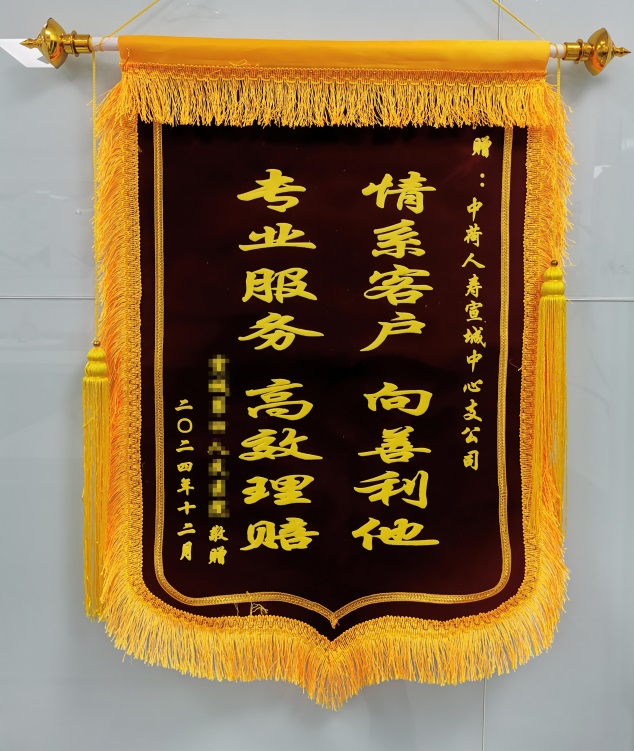 赠：中荷人寿宣城中心支公司
情系客户 向善利他
专业服务 高效理赔
敬赠
二〇二四年十二月